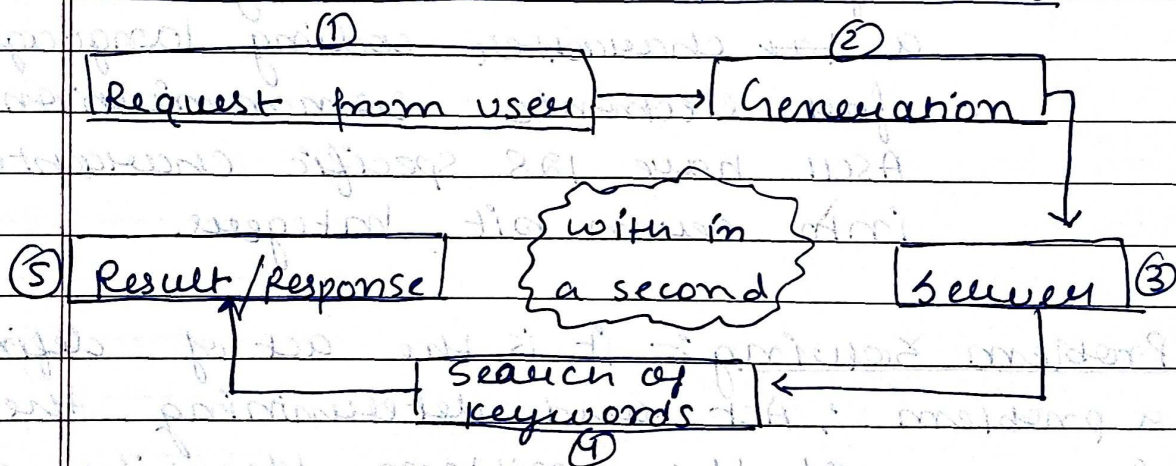 ①
②
Request from user
Generation
with in
a second
⑤ Result/Response
Server ③
Search of
keywords
④